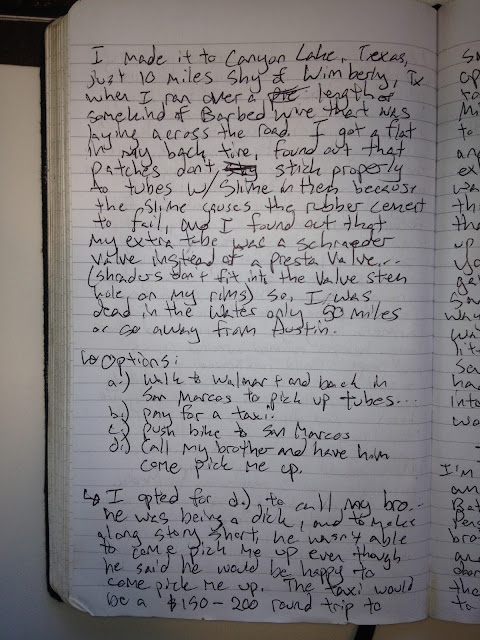 I made it to Canyon Lake, Texas,
just 10 miles shy of Wimberly, Tx
when I ran over a length of
somekind of Barbed wire that was
laying across the road. I got a flat
in my back tire, found out that
patches don't stick properly
to tubes w/ Slime in them because
the slime causes the rubber cement
to fail, and I found out that
my extra tube was a schraeder
valve instead of a presta valve...
(shraders don't fit into the valve stem
hole on my rims) So, I was
dead in the water only 50 miles
or so away from Austin.
↳ Options:
a.) walk to walmart and back in
San Marcos to pick up tubes...
b.) pay for a taxi.
c.) push bike to San Marcos
d.) Call my brother and have him
come pick me up.
↳ I opted for d.), to call my bro...
he was being a dick, and to make
a long story short, he wasn't able
to come pick me up even though
he said he would be happy to
come pick me up. The taxi would
be a $150-200 round trip to
I'm